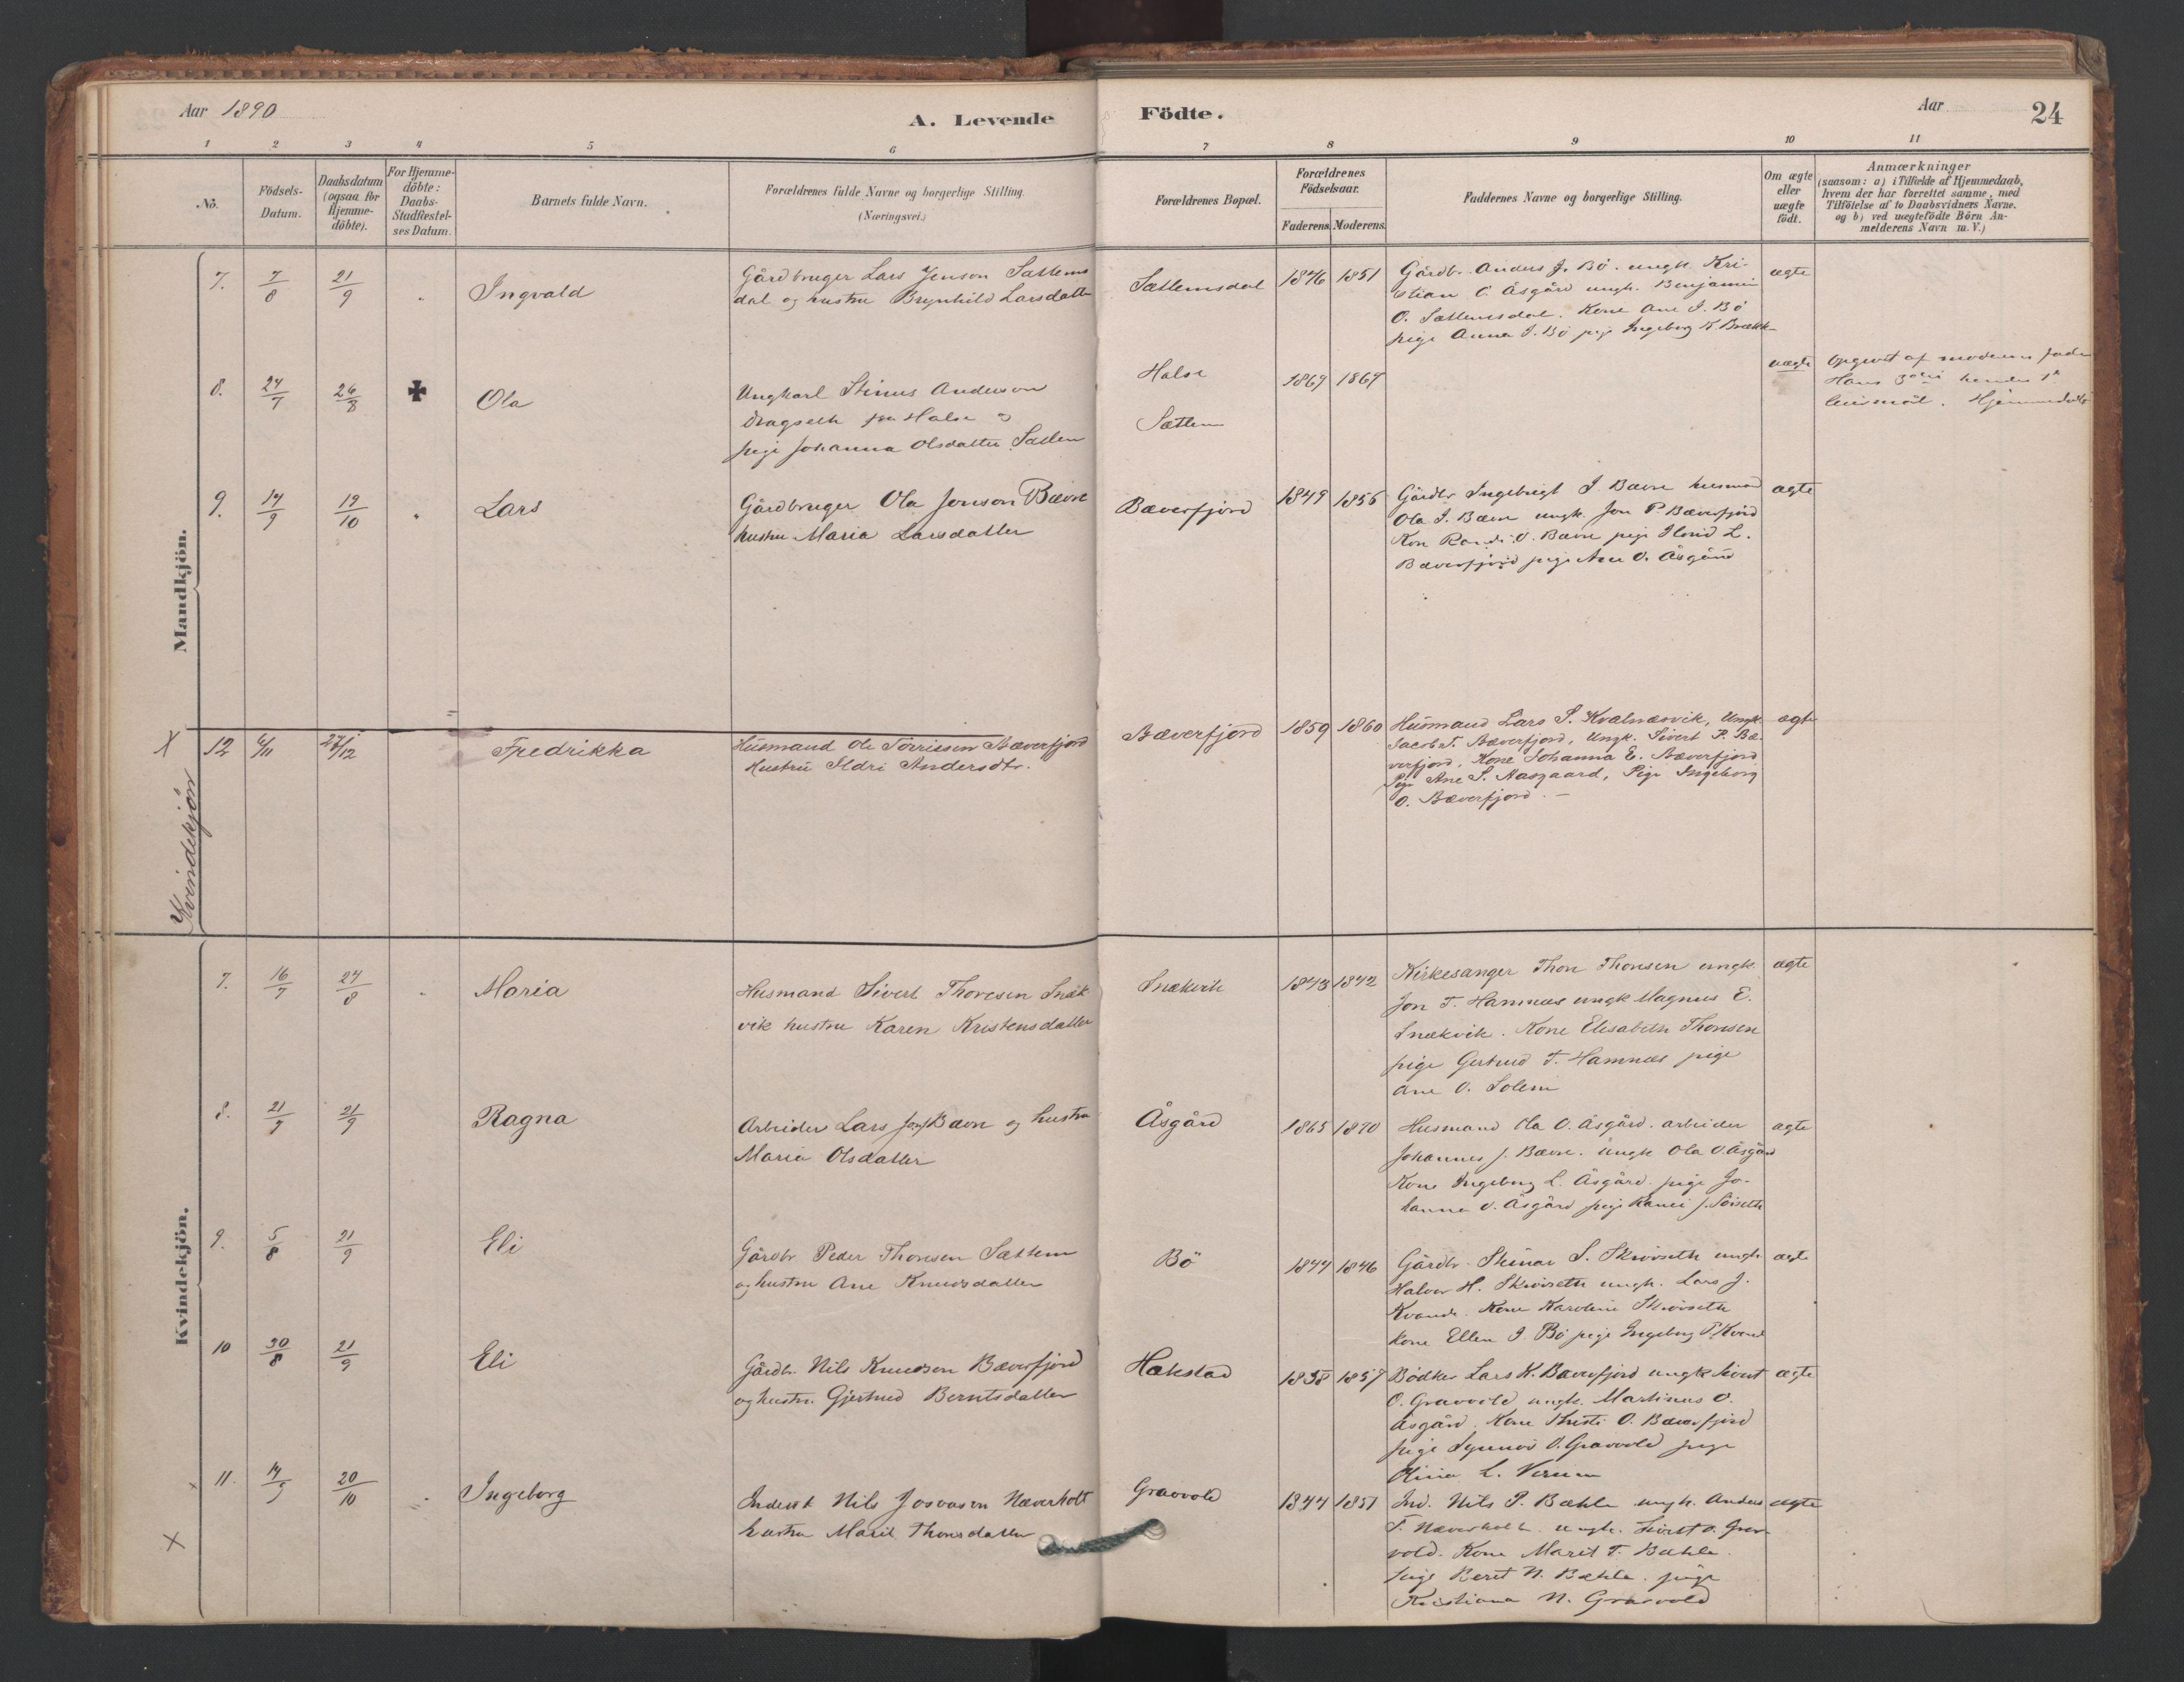 Aar 1890
A. Levende
Födte.
Aar
24
1 2 3 4 5 6 7 8 9 10 11
No.
Födsels-
Datum.
Daabsdatum
(ogsaa for
Hjemme-
döbte).
For Hjemme-
döbte:
Daabs-
Stadfæstel-
ses Datum.
Barnets fulde Navn.
Forældrenes fulde Navne og borgerlige Stilling.
(Næringsvei.)
Forældrenes Bopæl.
Forældrenes
Födselsaar.
Faderens. Moderens.
Faddernes Navne og borgerlige Stilling.
Om ægte
eller
uægte
födt.
Anmærkninger
(saasom: a) i Tilfælde af Hjemmedaab,
hvem der har forrettet samme, med
Tilföielse af to Daabsvidners Navne.
og b) ved uægtefödte Börn An-
melderens Navn m. V.)
Mandkjön.
7. 7/8 21/9 Ingvald
Gårdbruger Lars Jenson Sættems
dal og hustru Brynhild Larsdatter
Sættemsdal 1846 1851
Gårdbr. Anders J. Bö. ungk. Kri-
stian O. Åsgård ungk. Benjamin
O. Sættemsdal. Kone Ane I. Bö
pige Anna I. Bö pige Ingeborg K. Brækk
ægte
8. 24/7 26/8 Ola
Ungkarl Stinus Anderson
Dragseth fra Halse og
pige Johanna Olsdatter Sættem
Halse
Sættem
1869 1867
uægte
Opgivet af moderens fader
Hans 3die hendes 1ste
leiermål. Hjemmedøbt
9. 14/9 19/10 Lars
Gårdbruger Ola Jonson Bævre
hustru Maria Larsdatter
Bæverfjord 1849 1856
Gårdbr Ingebrigt I. Bævre husmand
Ola I. Bævre ungk. Jon P. Bæverfjord
Kon Randi O. Bævre pige L.
Bæverfjord pige Ane O. Åsgård
ægte
X 12 6/11 27/12 Fredrikka
Husmand Ole Torriesen Bæverfjord
Hustru Ildri Andersdtr.
Bæverfjord 1859 1860
Husmand Lars S. Kvalnæsvik, Ungk.
Jacob T. Bæverfjord, Ungk. Sivert P. Bæ-
verfjord, Kone Johanna E. Bæverfjord
Pige Ane S. Aasgaard, Pige Ingeborg
O. Bæverfjord. —
ægte
Kvindekjön
Kvindekjön.
7. 16/7 24/8 Maria
Husmand Sivert Thoresen Snæk
vik hustru Karen Kristensdatter
Snækvik 1843 1842
Kirkesanger Thore Thoresen ungk.
Jon T. Hamnæs ungk Magnus E.
Snækvik. Kone Elisabeth Thoresen
pige Gertrud T. Hamnæs pige
Ane O. Solem
ægte
8. 21/7 21/9 Ragna
Arbeider Lars Bævre og hustru
Maria Olsdatter
Åsgård 1865 1870
Husmand Ola O. Åsgård. arbeider
Johannes J. Bævre. ungk Ola O. Åsgård
Kone Ingeborg L. Åsgård. pige Jo-
hanna O. Åsgård pige J. Söiseth
ægte
9. 5/8 21/9 Eli
Gårdbr Peder Thoresen Sættem
og hustru Ane Knudsdatter
Bö 1844 1846
Gårdbr. Steinar S. Skröiseth ungk.
Halvor H. Skröiseth ungk. Lars J.
Kvande. Kone Karoline Skröiseth
Kone Ellen I. Bö pige Ingeborg P. Kvand
ægte
10 30/8 21/9 Eli
Gårdbr. Nils Knudson Bæverfjord
og hustru Gjertrud Berntsdatter
Hakstad 1838 1857
Bödker Lars K. Bæverfjord ungk Sivert
O. Gravvold ungk. Martinus O.
Åsgård. Kone Kristi O. Bæverfjord
pige Synnöv O. Gravvold pige
L.
ægte
11. 14/9 20/10 Ingeborg
Inderst Nils Josvason Næverholt
hustru Marit Thoresdatter
Gravvold 1844 1851
Ind. Nils P. Bæhle ungk. Anders
T. Næverholt ungk. Sivert O. Grav-
vold. Kone Marit T. Bæhle.
pige Beret N. Bæhle. pige
Kristiana N. Gravvold
ægte
X